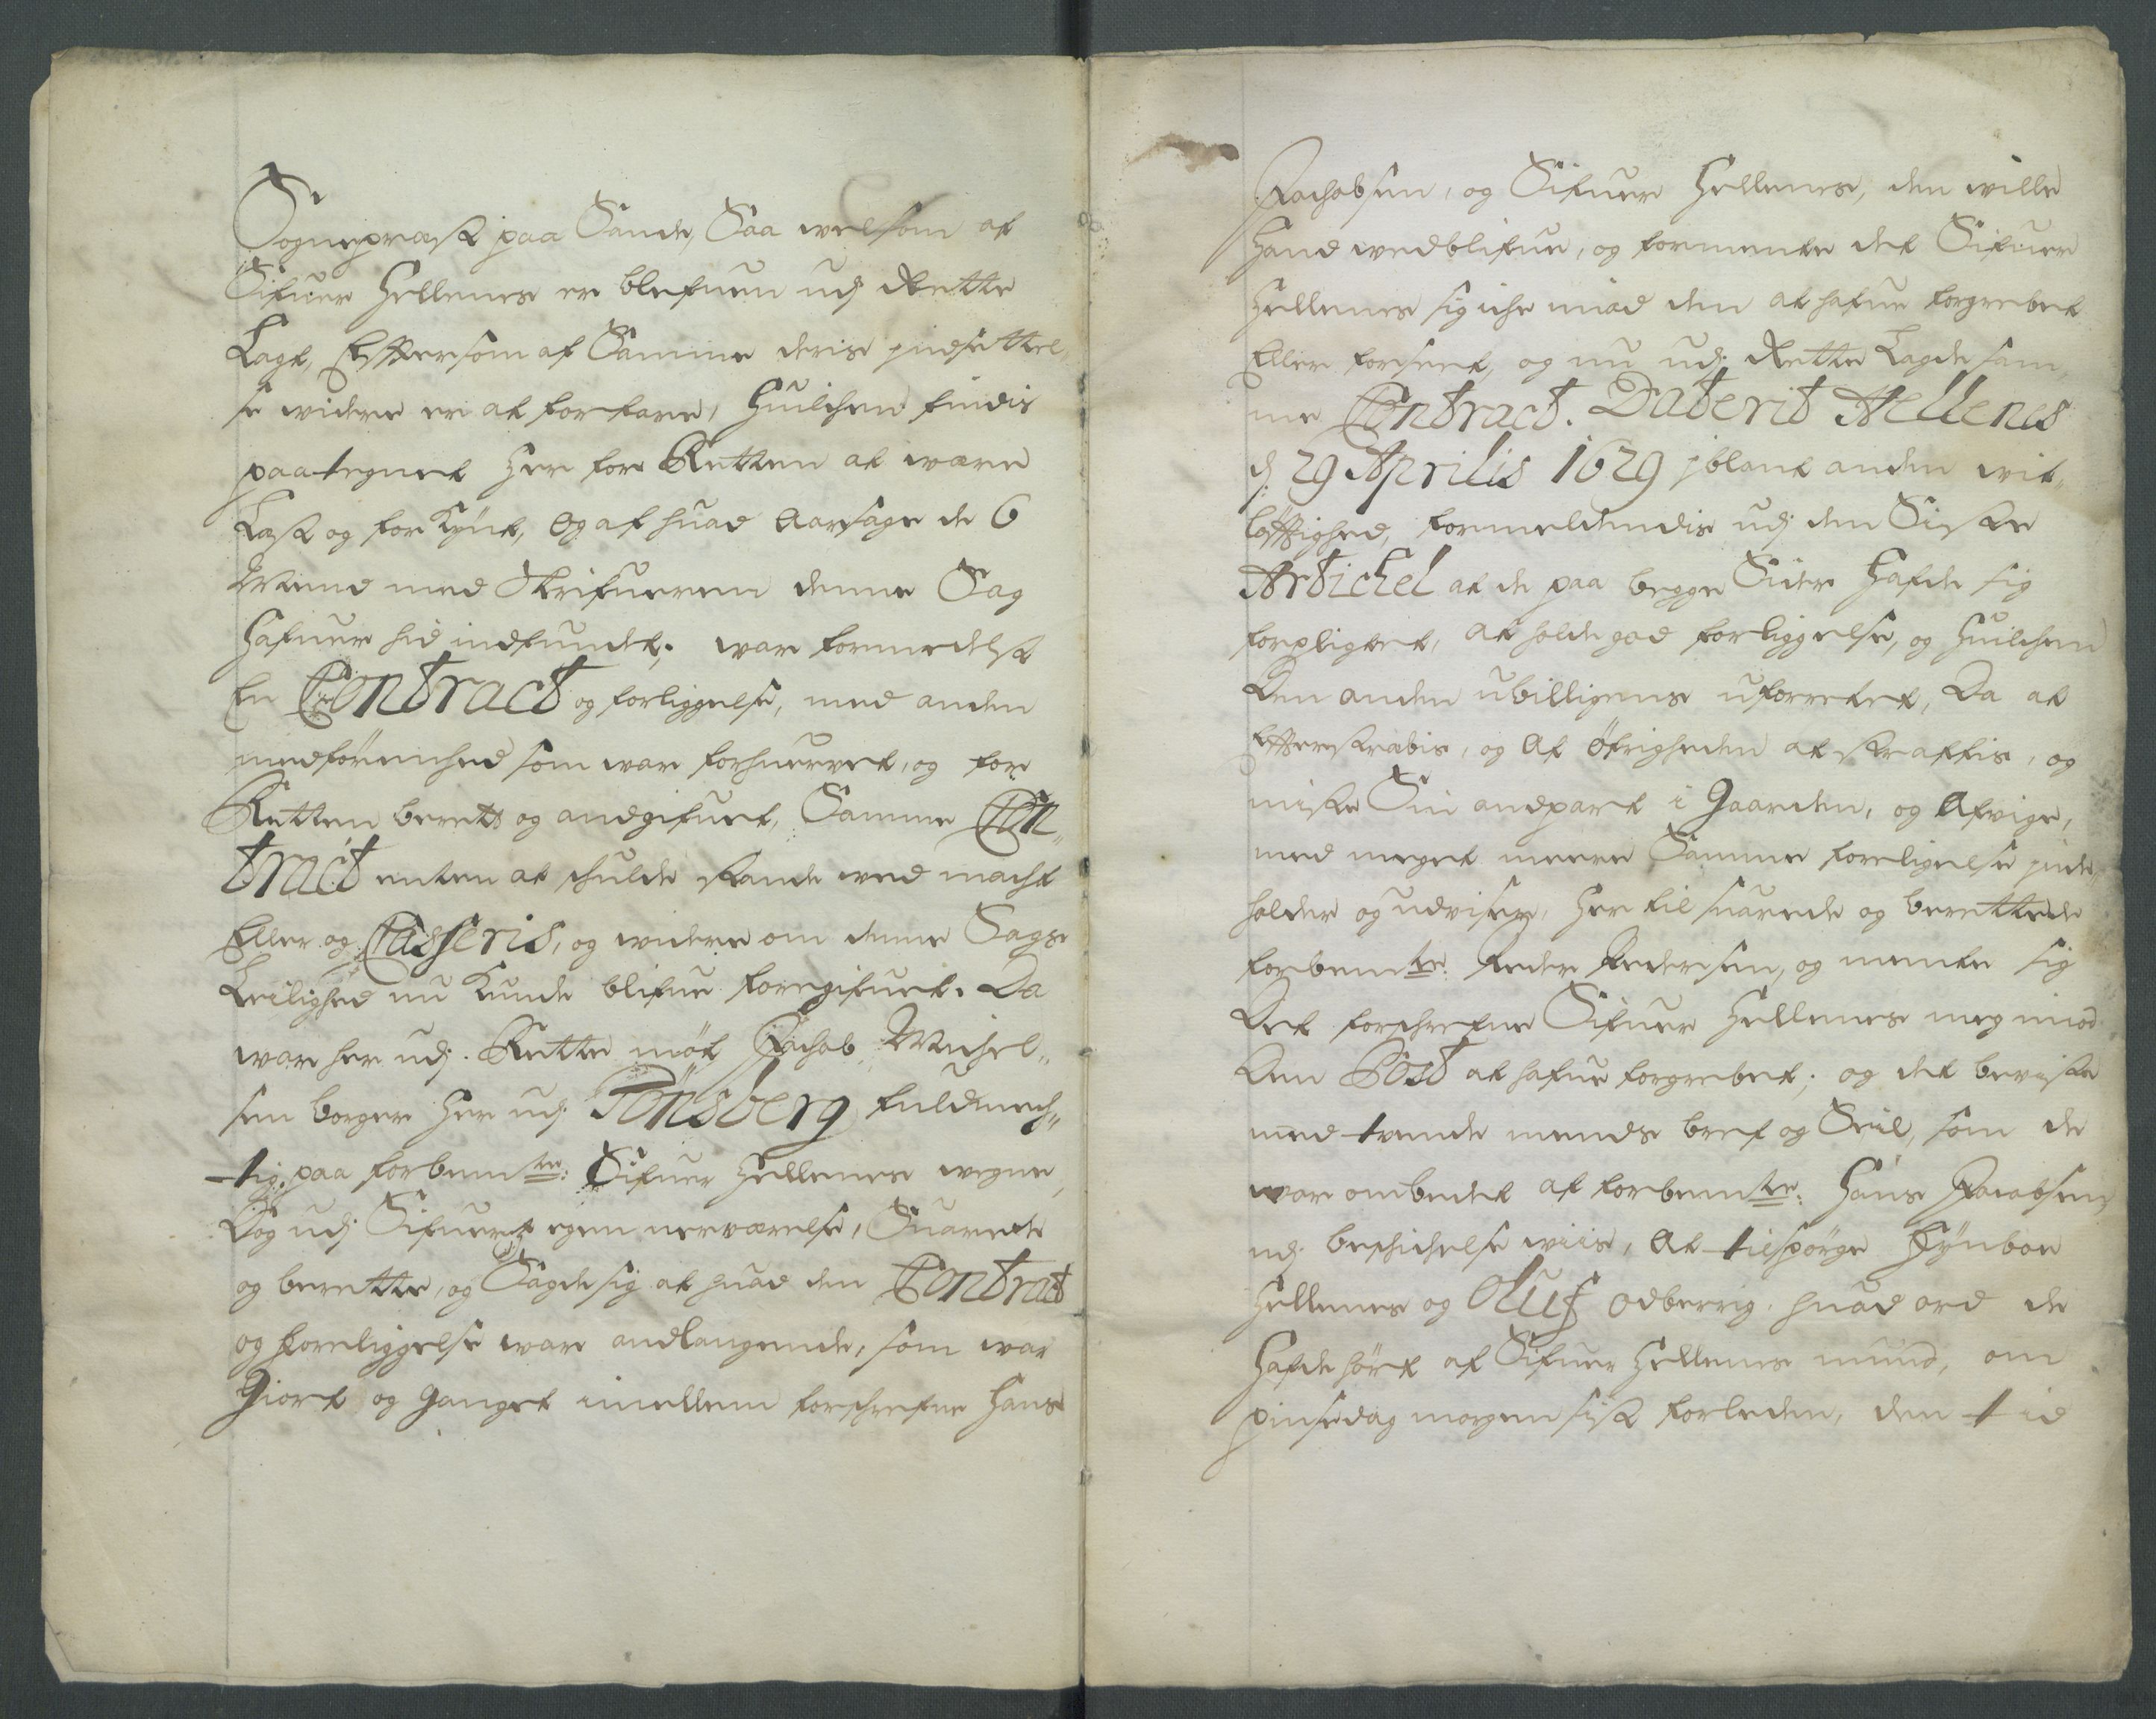 Sogneprest paa Sande, Saa velsom at
Sifuer Hellenes er blefuen udj Rette
Lagt, Effersom af Samme deris indsettel„
se widere er at forfare, Huilchen findis
paategnet Her for Retten at were
Læst og forkÿnt, og af huad Aarsage de 6
Mend med Skrifueren denne Sag
Hafuer hid indfundet; war formedelst
En Contract og forliggelse, med anden
medførenhed som war forhuerret, og for
Retten berett og andgifuet, Samme Con„
tract enten at schulde stande ved macht
Eller og Casseris, og widere om denne Sags
Leilighed nu Kunde blifue foregifuet. Da
war her udj Rette møt Jachob Michel„
sen borger her udj Tönsberg fuldmech„
tig paa forbemte: Sifuer Hellenes vegne,
Dog udj Sifuers egen nerværelse, Suarede
og berette, og Sagde sig at huad den Contract
og foreliggelse ware andlangende, som war
Giort og Ganget imellem forschrefne Hans
Jachobsen, og Sifuer Hellenes, den wille
Hand vedblifue, og formente det Sifuer
Hellenes sig iche imod den at hafue forgrebet
Eller forseet, og nu udj Rette Lagde sam„
me Contract. Daterit Hellenes
d: 29 Aprilis 1629 jblant anden vit„
løfftighed, formeldendis udj den Siste
Artichel at de paa begge Sider Hafde sig
forpligtet, at holde god forliggelse, og Huilchen
Den anden ubilligens uforrettet, Da at
Efferstrebis, og Af Øfrigheden at straffis, og
miste Sin andpart i Gaarden, og Afvige,
med meget meere Samme foreligelse inde„
holder og udviser, Her til suarede og berettede
forbemte: Peder Pedersen, og mente sig
Det forschrefne Sifuer Hellenes meg imod
Den Post at hafue forgrebet; og det beviste
med tvende mends bref og Seil, som de
ware ombedet af forbemte: Hans Jacobsen
udj beschichelse viis, At tilspørge Fÿnboe
Hellenes og Oluf Odberrig, huad ord de
Hafde hørt af Sifuer Hellenes mund, om
pinsedag morgen sist forleden, den tid